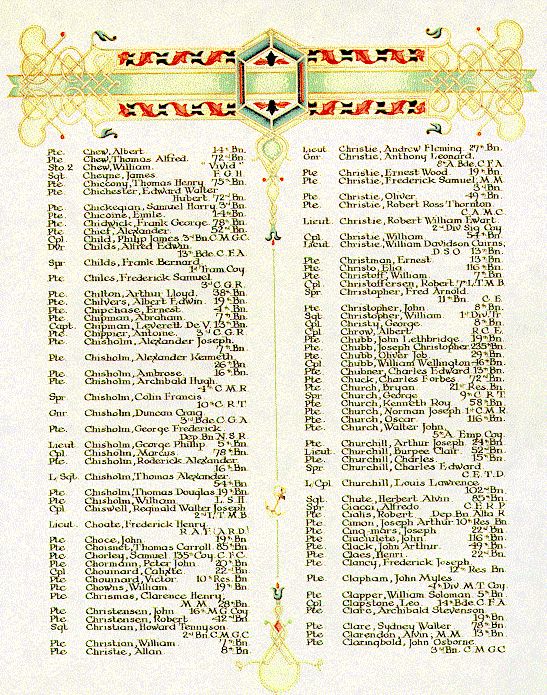 Pte. Chew, Albert 14th Bn.
Pte. Chew, Thomas Alfred. 72nd Bn.
Sto. 2 Chew, William. "Vivid"
Sgt. Cheyne, James F. G. H.
Pte. Chiccony, Thomas Henry 75th Bn.
Pte. Chichester, Edward Walter
Hubert 72nd Bn.
Pte. Chickegian, Samuel Harry 3rd Bn.
Pte. Chicome, Emile 14th Bn.
Pte. Chidwick, Frank George 78th Bn.
Pte. Chief, Alexander 52nd Bn.
Cpl. Child, Philip James 3rd Bn. C. M. G. C.
Dvr. Childs, Alfred Edwin
13th Bde. C. F. A.
Spr. Childs, Frank Bernard
1st Tram. Coy
Pte. Chiles, Frederick Samuel
3rd C. G. R.
Pte. Chilton, Arthur Lloyd. 38th Bn.
Pte. Chilvers, Albert Edwin 19th Bn.
Pte. Chipchase, Ernest 4th Bn.
Pte. Chipman, Abraham 7th Bn.
Capt. Chipman, Leverett De V. 13th Bn.
Pte. Chipper, Antoine. 3rd C. G. R.
Pte. Chisholm, Alexander Joseph
7th Bn.
Pte. Chisholm, Alexander Kenneth
26th Bn.
Pte. Chisholm, Ambrose 16th Bn.
Pte. Chisholm, Archibald Hugh
4th C. M. R.
Spr. Chisholm, Colin Francis
C. R. T.
Gnr. Chisholm, Duncan Craig
3rd Bde. C. G. A.
Pte. Chisholm, George Frederick
Dep. Bn. N. S. R.
Lieut. Chisholm, George Philip 5th Bn.
Cpl. Chisholm, Marcus 78th Bn.
Pte. Chisholm, Roderick Alexander
16th Bn.
L. Sgt. Chisholm, Thomas Alexander.
54th Bn.
Pte. Chisholm, Thomas Douglas 19th Bn.
Pte. Chisholm, William L. S. H.
Cpl. Chiswell, Reginald Walter Joseph
2nd T. M. B.
Lieut. Choate, Frederick Henry
R. A. F. (A. R. D.)
Pte. Choce, John 19th Bn.
Pte. Choisnet, Thomas Carroll 85th Bn.
Pte. Chorley, Samuel 135th Coy. C. F. C.
Pte. Chormann, Peter John 20th Bn.
Cpl. Chouinard, Calixte 22nd Bn.
Pte. Chouinard, Victor 10th Res. Bn.
Pte. Chowns, William 19th Bn.
Pte. Chrismas, Clarence Henry,
M. M. 28th Bn.
Pte. Christensen, John 16th M. G. Coy.
Pte. Christensen, Robert 42nd Bn.
Sgt. Christian, Howard Tennyson
2nd Bn. C. M. G. C.
Pte. Christian, William 7th Bn.
Pte. Christie, Allan 8th Bn.
Lieut. Christie, Andrew Fleming 27th Bn.
Gnr. Christie, Anthony Leonard.
8th A. Bde. C. F. A.
Pte. Christie, Ernest Wood 19th Bn.
Pte. Christie, Frederick Samuel, M. M.
3rd Bn.
Pte. Christie, Oliver 49th Bn.
Pte. Christie, Robert Ross Thornton
C. A. M. C.
Lieut. Christie, Robert William Ewart
2nd Div. Sig. Coy
Cpl. Christie, William 54th Bn.
Lieut. Christie, William Davidson Cairns,
D. S. O. 13th Bn.
Pte. Christman, Ernest 13th Bn.
Pte. Christo, Elia 116th Bn.
Pte. Christoff, William 7th Bn.
Cpl. Christoffersen, Robert 7th L. T. M. B.
Spr. Christopher, Fred Arnold
11th Bn. C. E.
Pte. Christopher, John 8th Bn.
Sgt. Christopher, William 1st Div. Tr.
Cpl. Christy, George 8th Bn.
Cpl. Chrow, Albert R. C. E.
Pte. Chubb, John Lethbridge 19th Bn.
Pte. Chubb, Joseph Christopher 235th Bn.
Pte. Chubb, Oliver Job 29th Bn.
Cpl. Chubb, William Wellington 46th Bn.
Pte. Chubner, Charles Edward 13th Bn.
Pte. Chuck, Charles Forbes 72nd Bn.
Pte. Church, Bryan 21st Res. Bn.
Spr. Church, George 9th C. R. T.
Pte. Church, Kenneth Roy 58th Bn.
Pte. Church, Norman Joseph 1st C. M. R.
Pte. Church, Oscar 116th Bn.
Pte. Church, Walter John
5th A. Emp. Coy
Pte. Churchill, Arthur Joseph 24th Bn.
Lieut. Churchill, Burpee Clair 52nd Bn.
Pte. Churchill, Charles 15th Bn.
Spr. Churchill, Charles Edward
C. E. T. D.
L/Cpl. Churchill, Louis Lawrence
102nd Bn.
Sgt. Chute, Herbert Alvin 85th Bn.
Spr. Ciacci, Alfredo C. E. R. P.
Pte. Cialis, Robert Dep. Bn. Alta R.
Pte. Cimon, Joseph Arthur 10th Res. Bn.
Pte. Cinq-mars, Joseph 22nd Bn.
Pte. Ciuchulete, John 116th Bn.
Pte. Clack, John Arthur 49th Bn.
Pte. Claes, Henri 22nd Bn.
Pte. Clancy, Frederick Joseph
12th Res. Bn.
Pte. Clapham, John Myles
4th Div. M. T. Coy.
Pte. Clapper, William Soloman 5th Bn.
Cpl. Clapstone, Leo 14th Bde. C. F. A.
Pte. Clare, Archibald Stevenson
19th Bn.
Pte. Clare, Sydney Walter 78th Bn.
Pte. Clarendon, Alvin; M. M. 13th Bn.
Pte. Claringbold, John Osborne
3rd Bn. C. M. G. C.